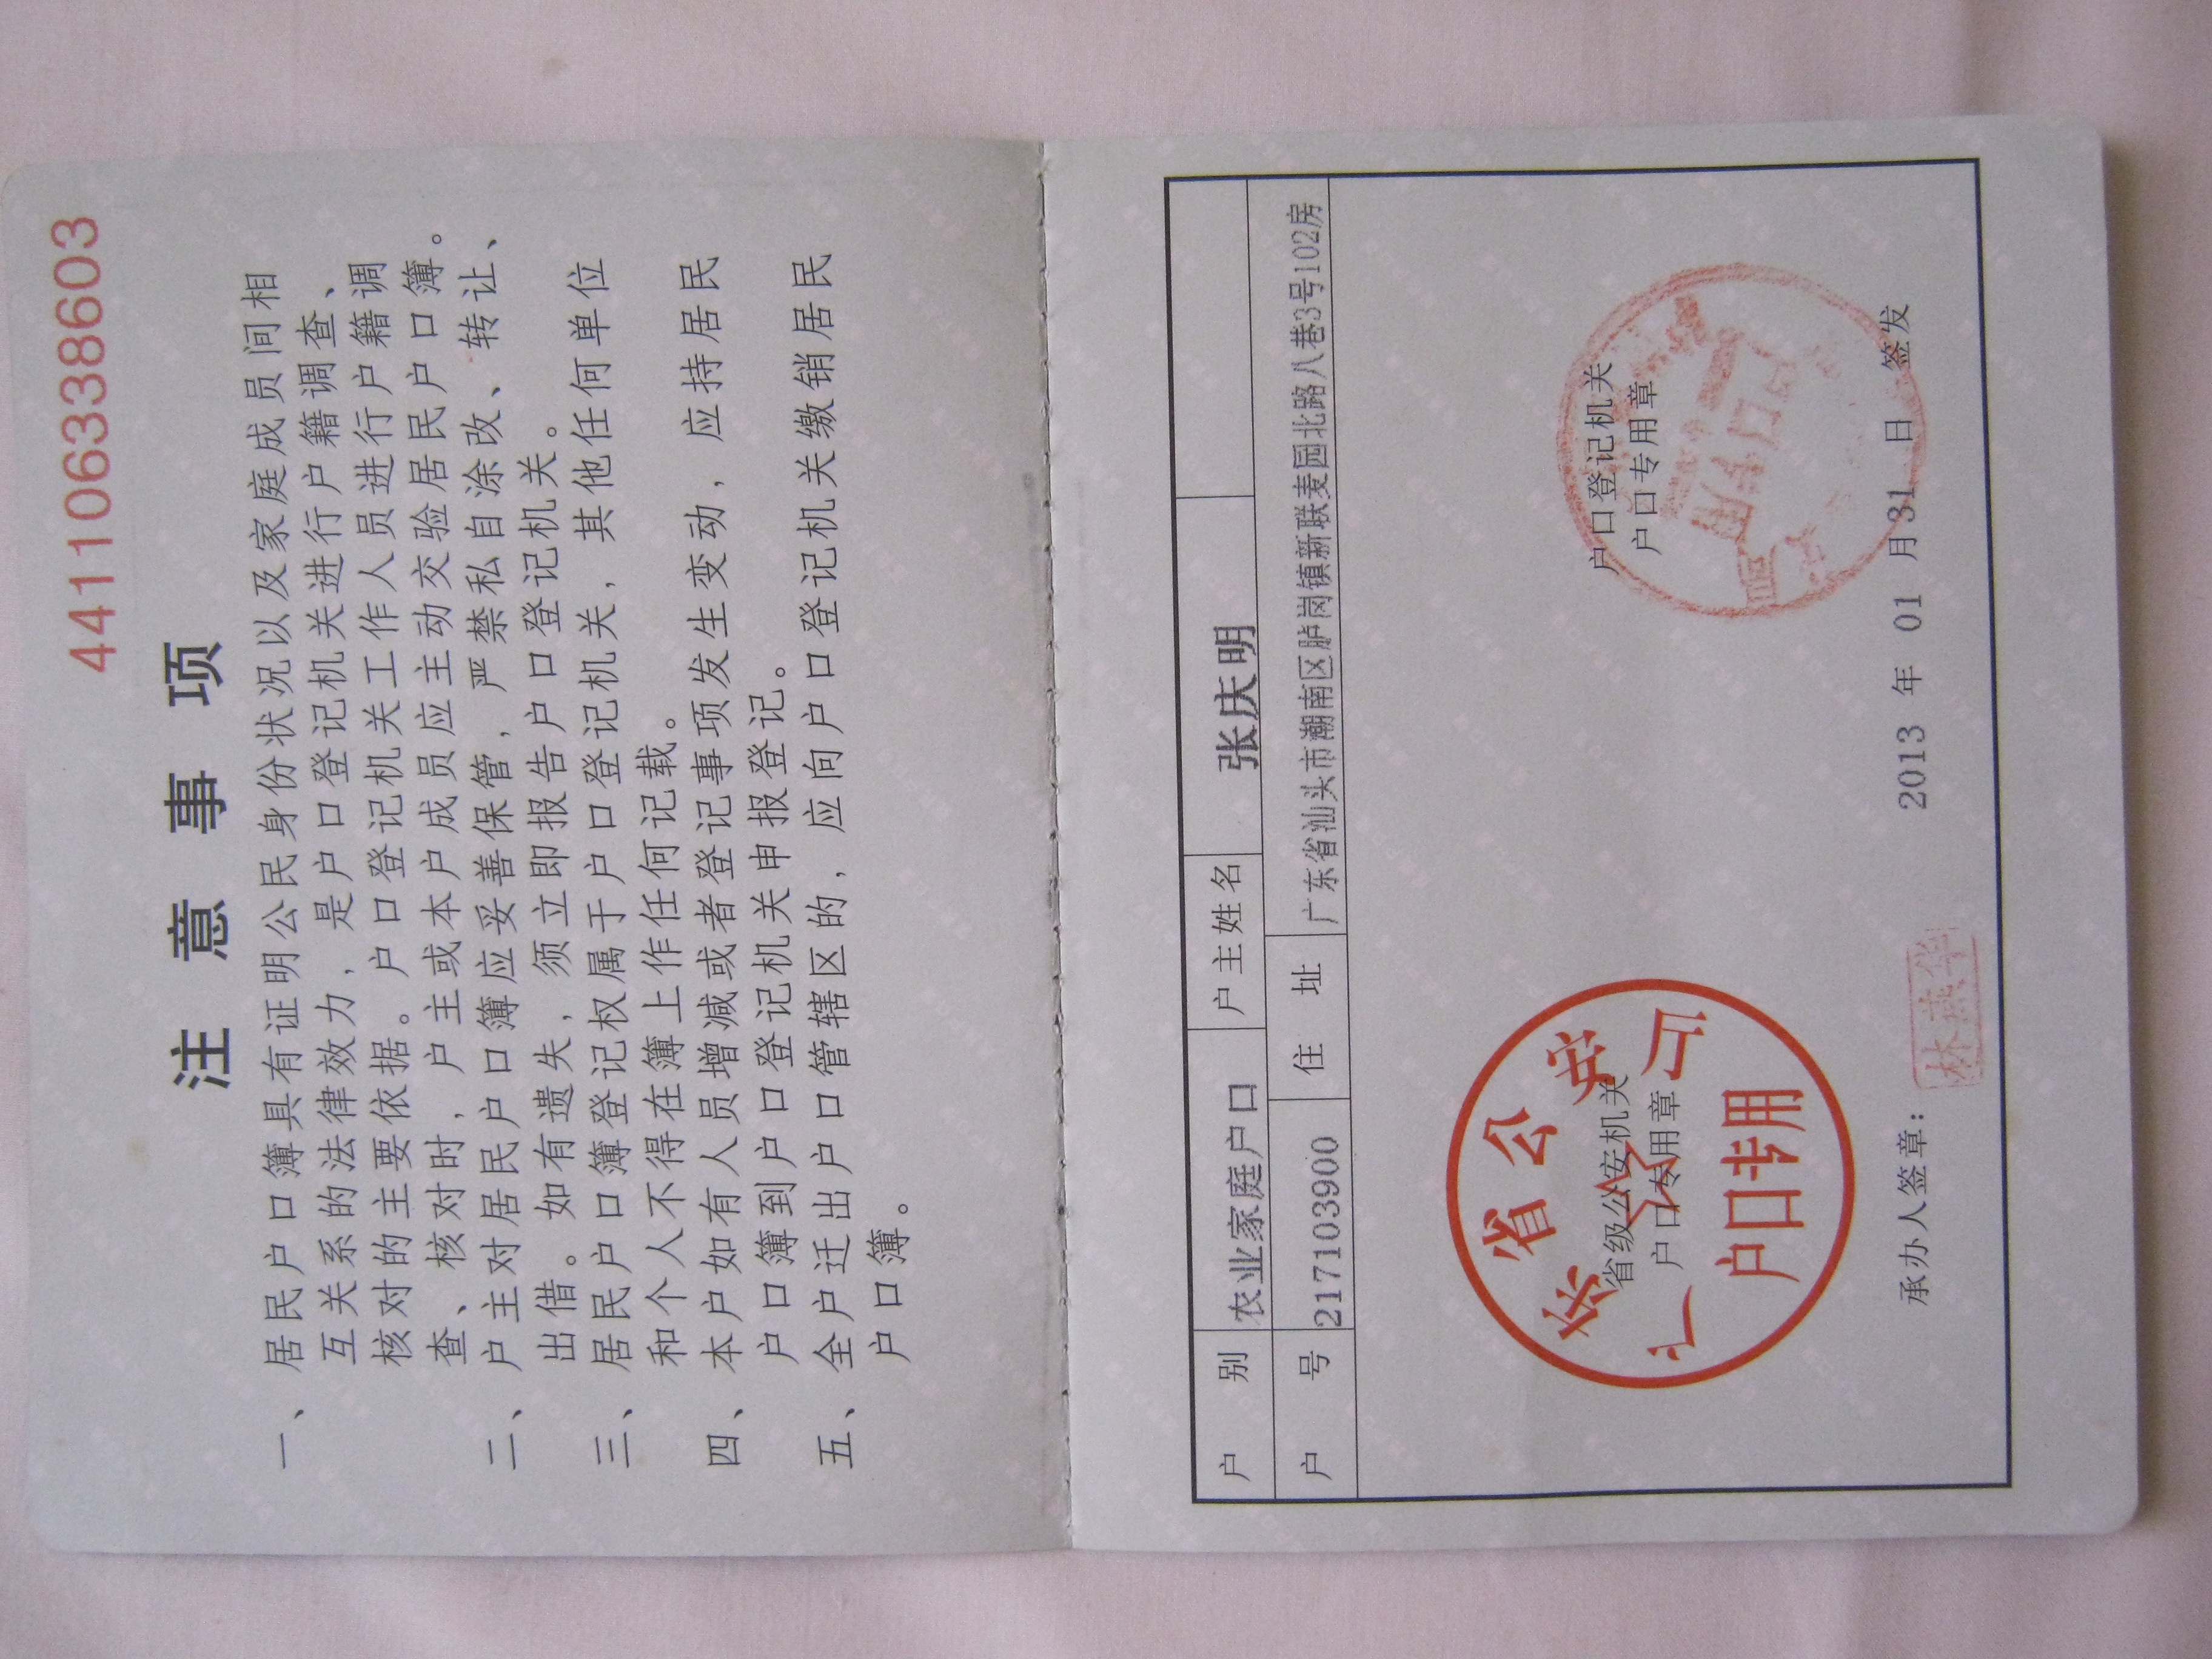 441106338603
注意事项
一、居民户口簿具有证明公民身份状况以及家庭成员间相
互关系的法律效力，是户口登记机关进行户籍调查、
核对的主要依据。户口登记机关工作人员进行户籍调
查、核对时，户主或本户成员应主动交验居民户口簿。
二、户主对居民户口簿应妥善保管，严禁私自涂改、转让、
出借。如有遗失，须立即报告户口登记机关。
三、居民户口簿登记权属于户口登记机关，其他任何单位
和个人不得在簿上作任何记载。
四、本户如有人员增减或者登记事项发生变动，应持居民
户口簿到户口登记机关申报登记。
五、全户迁出户口管辖区的，应向户口登记机关缴销居民
户口簿。
户别 农业家庭户口 户主姓名 张庆明
户号 217103900 住址 广东省汕头市潮南区胪岗镇新联麦园北路八巷3号102房
广东省公安厅
省级公安机关
户口专用章
户口专用
户口登记机关
户口专用章
承办人签章：林燕华
2013 年 01 月31 日 签发